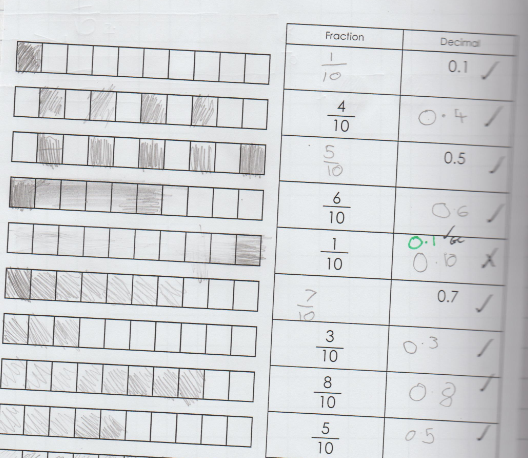 Fraction Decimal
1/10 0.1 ✓
4/10 0.4 ✓
5/10 0.5 ✓
6/10 06 ✓
0.1 ✓
1/10 0.10 ✗
7/10 0.7 ✓
3/10 0.3 ✓
8/10 08 ✓
5/10 05 ✓